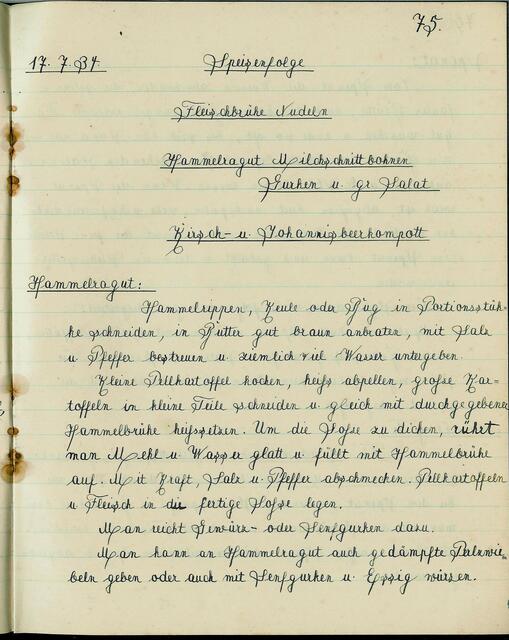 75.
17. 7. 34. Speisenfolge
Fleischbrühe Nudeln
Hammelragut Milchschnittbohnen
Gurken u. gr. Salat
Kirsch- u. Johannisbeerkompott
Hammelragut:
Hammelrippen, Keule oder Bug in Portionsstük-
ke schneiden, in Butter gut braun anbraten, mit Salz
u. Pfeffer bestreuen u. ziemlich viel Wasser untergeben.
Kleine Pellkartoffel kochen, heiß abpellen, große Kar-
toffeln in kleine Teile schneiden u. gleich mit durchgegebener
Hammelbrühe heißsetzen. Um die Soße zu dicken, rührt
man Mehl u. Wasser glatt u. füllt mit Hammelbrühe
auf. Mit Kraft, Salz u. Pfeffer abschmecken. Pellkartoffeln
u. Fleisch in die fertige Soße legen.
Man reicht Gewürz- oder Senfgurken dazu.
Man kann an Hammelragut auch gedämpfte Perlzwie-
beln geben oder auch mit Senfgurken u. Essig würzen.